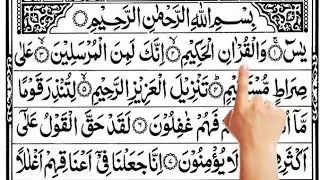 بِسْمِ اللهِ الرَّحْمٰنِ الرَّحِيْمِ
يٰسٓ ۚ﴿۱﴾ وَالْقُرْاٰنِ الْحَكِيْمِ ۙ﴿۲﴾ اِنَّكَ لَمِنَ الْمُرْسَلِيْنَ ۙ﴿۳﴾ عَلٰى
صِرَاطٍ مُّسْتَقِيْمٍ ؕ﴿۴﴾ تَنْزِيْلَ الْعَزِيْزِ الرَّحِيْمِ ۙ﴿۵﴾ لِتُنْذِرَ قَوْمًا
مَّاۤ فَهُمْ غٰفِلُوْنَ ﴿۶﴾ لَقَدْ حَقَّ الْقَوْلُ عَلٰٓى
اَكْثَرِهِمْ لَا يُؤْمِنُوْنَ ﴿۷﴾ اِنَّا جَعَلْنَا فِيْۤ اَعْنَاقِهِمْ اَغْلٰلًا